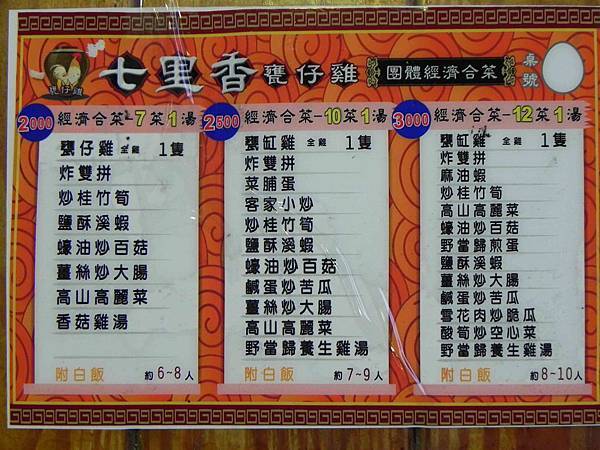 甕仔雞
七里香 甕仔雞 團體經濟合菜 桌號
2000 經濟合菜-7菜1湯
甕仔雞 全雞 1隻
炸雙拼
炒桂竹筍
鹽酥溪蝦
蠔油炒百菇
薑絲炒大腸
高山高麗菜
香菇雞湯
附白飯 約6~8人
2500 經濟合菜-10菜1湯
甕缸雞 全雞 1隻
炸雙拼
菜脯蛋
客家小炒
炒桂竹筍
鹽酥溪蝦
蠔油炒百菇
鹹蛋炒苦瓜
薑絲炒大腸
高山高麗菜
野當歸養生雞湯
附白飯 約7~9人
3000 經濟合菜-12菜1湯
甕缸雞 全雞 1隻
炸雙拼
麻油蝦
炒桂竹筍
高山高麗菜
蠔油炒百菇
野當歸煎蛋
鹽酥溪蝦
薑絲炒大腸
鹹蛋炒苦瓜
雪花肉炒脆瓜
酸筍炒空心菜
野當歸養生雞湯
附白飯 約8~10人